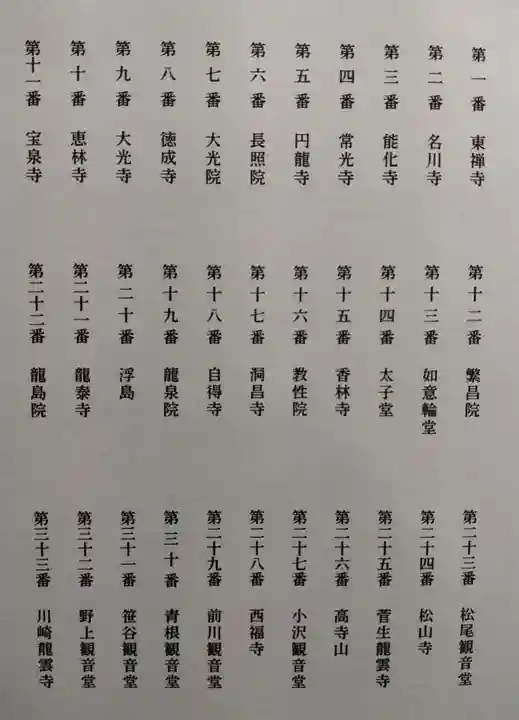 第一番 東禅寺
第二番 名川寺
第三番 能化寺
第四番 常光寺
第五番 円龍寺
第六番 長照院
第七番 大光院
第八番 徳成寺
第九番 大光寺
第十番 恵林寺
第十一番 宝泉寺
第十二番 繁昌院
第十三番 如意輪堂
第十四番 太子堂
第十五番 香林寺
第十六番 教性院
第十七番 洞昌寺
第十八番 自得寺
第十九番 龍泉院
第二十番 浮島
第二十一番 龍泰寺
第二十二番 龍島院
第二十三番 松尾観音堂
第二十四番 松山寺
第二十五番 菅生龍雲寺
第二十六番 高寺山
第二十七番 小沢観音堂
第二十八番 西福寺
第二十九番 前川観音堂
第三十番 青根観音堂
第三十一番 笹谷観音堂
第三十二番 野上観音堂
第三十三番 川崎龍雲寺